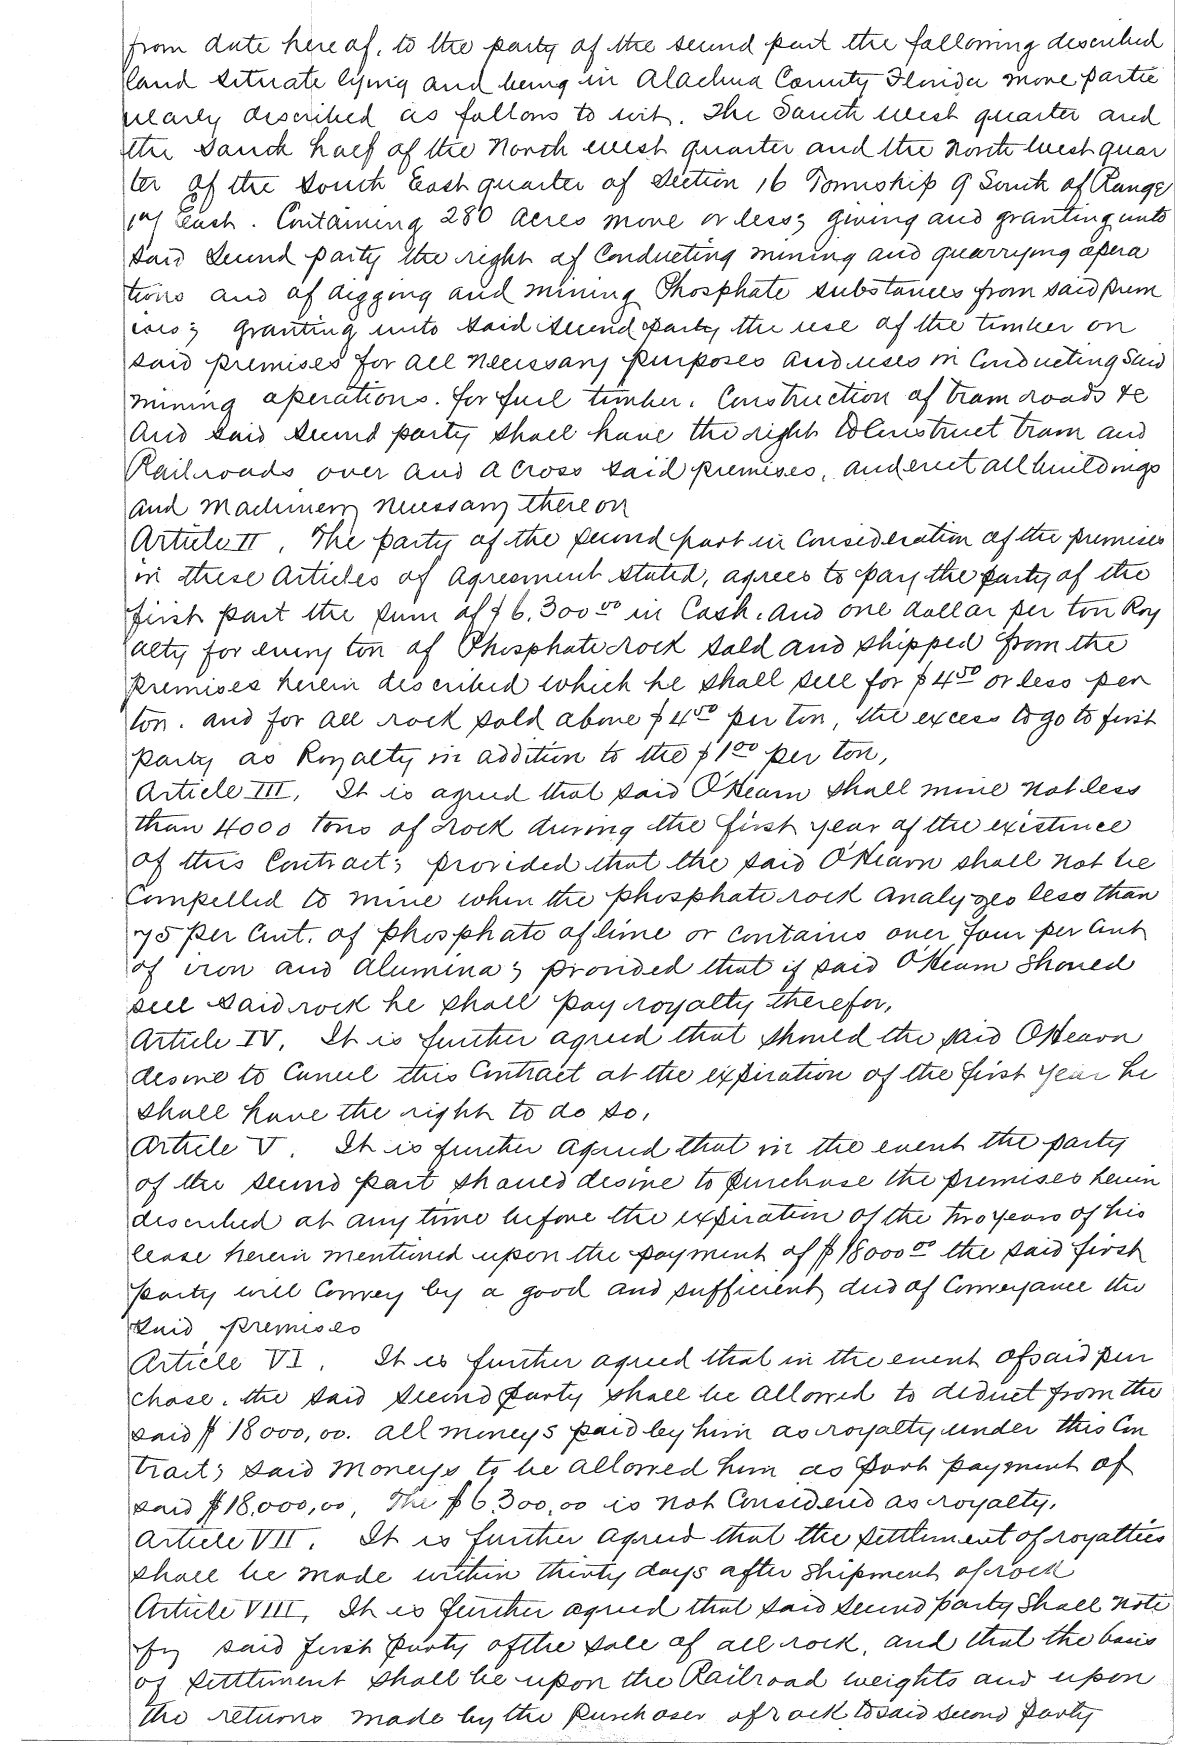 from date hereof, to the party of the second part the following described
land situate lying and being in Alachua County Florida more partic
ularly described as follows to wit. The South west quarter and
the South half of the North west quarter and the North West quar
ter of the South East quarter of Section 16 Township 9 South of Range
17 East. Containing 280 Acres more or less; giving and granting unto
said second party the right of Conducting mining and quarrying opera
tions and of digging and mining Phosphate substances from said prem
ises; granting unto said second party the use of the timber on
said premises for all necessary purposes and uses in Conducting said
mining operations. for fuel timber. Construction of tram roads &c
And said second party shall have the right to Construct tram and
Railroads over and across said premises, and erect all buildings
and Machinery necessary thereon
Article II, The party of the second part in Consideration of the premises
in these Articles of Agreement stated, agrees to pay the party of the
first part the sum of $6,300.00 in Cash. and one dollar per ton Roy
alty for every ton of Phosphate rock sold and shipped from the
premises herein described which he shall sell for $4.50 or less per
ton. and for all rock sold above $4.50 per ton, the excess to go to first
party as Royalty in addition to the $1.00 per ton,
Article III, It is agreed that said O'Hearn shall mine not less
than 4000 tons of rock during the first year of the existence
of this Contract; provided that the said O'Hearn shall not be
Compelled to mine when the phosphate rock analyzes less than
75 per Cent. of phosphate of lime or contains over four per Cent
of iron and Alumina; provided that if said O'Hearn should
sell said rock he shall pay royalty therefor,
Article IV, It is further agreed that should the said O'Hearn
desire to Cancel this Contract at the expiration of the first year he
shall have the right to do so,
Article V. It is further agreed that in the event the party
of the second part should desire to purchase the premises herein
described at any time before the expiration of the two years of his
lease herein mentioned upon the payment of $18000.00 the said first
party will Convey by a good and sufficient deed of Conveyance the
said premises
Article VI. It is further agreed that in the event of said pur
chase. the said second party shall be allowed to deduct from the
said $18000,00. all moneys paid by him as royalty under this Con
tract; said moneys to be allowed him as part payment of
said $18,000,00, The $6,300,00 is not Considered as royalty.
Article VII. It is further agreed that the settlement of royalties
shall be made within thirty days after shipment of rock
Article VIII, It is further agreed that said second party shall noti
fy said first party of the sale of all rock, and that the basis
of settlement shall be upon the Railroad weights and upon
the returns made by the Purchaser of rock to said second party